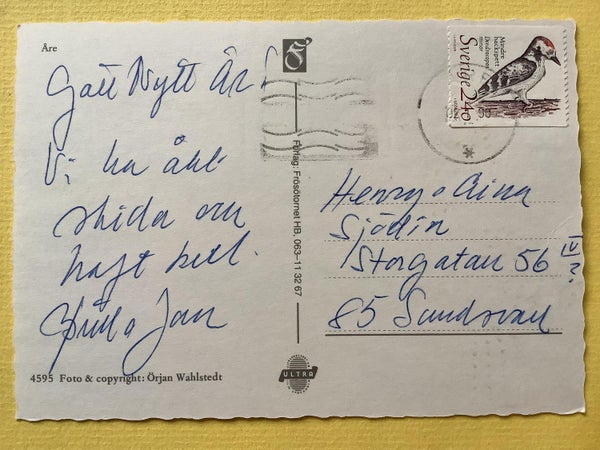 Åre
Gott Nytt År!
Vi har åkt
skidor och
haft kul.
Jan
4595 Foto & copyright: Örjan Wahlstedt
Förlag: Frösötornet HB, 063–11 32 67
ULTRA
Mindre
hackspett
Dendrocopos
minor
Sverige 2.40
90
Henry o Aina
Sjödin
Storgatan 56
85 Sundsvall